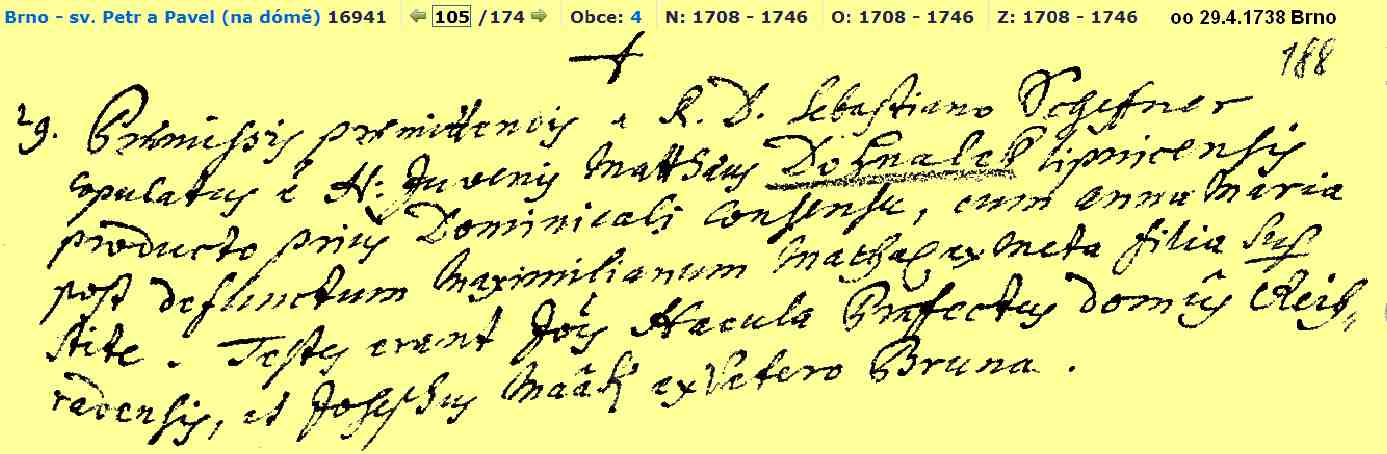 Brno - sv. Petr a Pavel (na dómě) 16941 105 /174 Obce: 4 N: 1708 - 1746 O: 1708 - 1746 Z: 1708 - 1746 oo 29.4.1738 Brno
188
29. Praemissis praemittendis a R. D. Sebastiano Scheffner
copulatus e H: Juvenis Matthaeus Dohnalek lipnicensis
producto prius Dominicali Consensu, cum Anna Maria
post defunctum Maximilianum ex Meta filia
stite. Testes erant Jos Hacula Praefectus domûs Reich,
radensis, et Josephus ex Vetero Bruna.